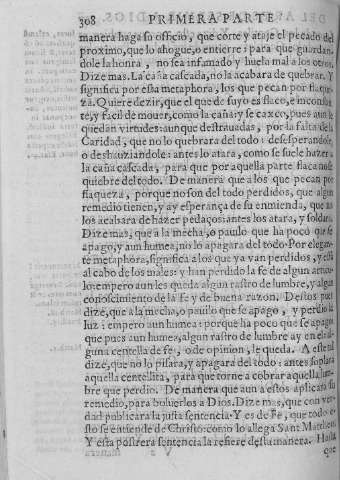 308 PRIMERA PARTE
manera haga su officio, que corte y ataje el pecado del
proximo, que lo ahogue, o entierre: para que guardan
dole la honra, no sea infamado y huela mal a los otros.
Dize mas. La caña cascada, no la acabara de quebrar. Y
significa por esta metaphora, los que pecan por flaque
za. Quiere dezir, que el que de suyo es flaco, e inconstan
te, y facil de mouer, como la caña: y se caxco, pues aun le
quedan virtudes: aunque destrauadas, por la falta de la
Caridad, que no lo quebrara del todo: desesperandole,
o deshauziandole: antes lo atara, como se suele hazer a
la caña cascada, para que por aquella parte flaca no se
quiebre del todo. De manera que a los que pecan por
flaqueza, porque no son del todo perdidos, que algun
remedio tienen, y ay esperança de su enmienda, que no
los acabara de hazer pedaços: antes los atara, y soldara.
Dize mas, que a la mecha, o paulo que ha poco que se
apago, y aun humea, no lo apagara del todo. Por elegan
te metaphora, significa a los que ya van perdidos, y esta
al cabo de los males: y han perdido la fe de algun articu
lo: empero aun les queda algun rastro de lumbre, y algun
conoscimiento de la fe y de buena razon. Destos pues
dize, que a la mecha, o pauilo que se apago, y perdio la
luz: empero aun humea: porque ha poco que se apago
que pues aun humea, algun rastro de lumbre ay en el: al
guna centella de fe, o de opinion, le queda. A este tal
dize, que no lo pisara, y apagara del todo: antes soplara
aquella centellita, para que torne a cobrar aquella lum-
bre que perdio. De manera que aun a estos aplicara su
remedio, para boluerlos a Dios. Dize mas, que con ver-
dad publicara la justa sentencia. Y es de Fè, que todo e-
sto se entiende de Christo: como lo allega Sant Mattheo.
Y esta postrera sentencia la refiere desta manera. Hasta
que